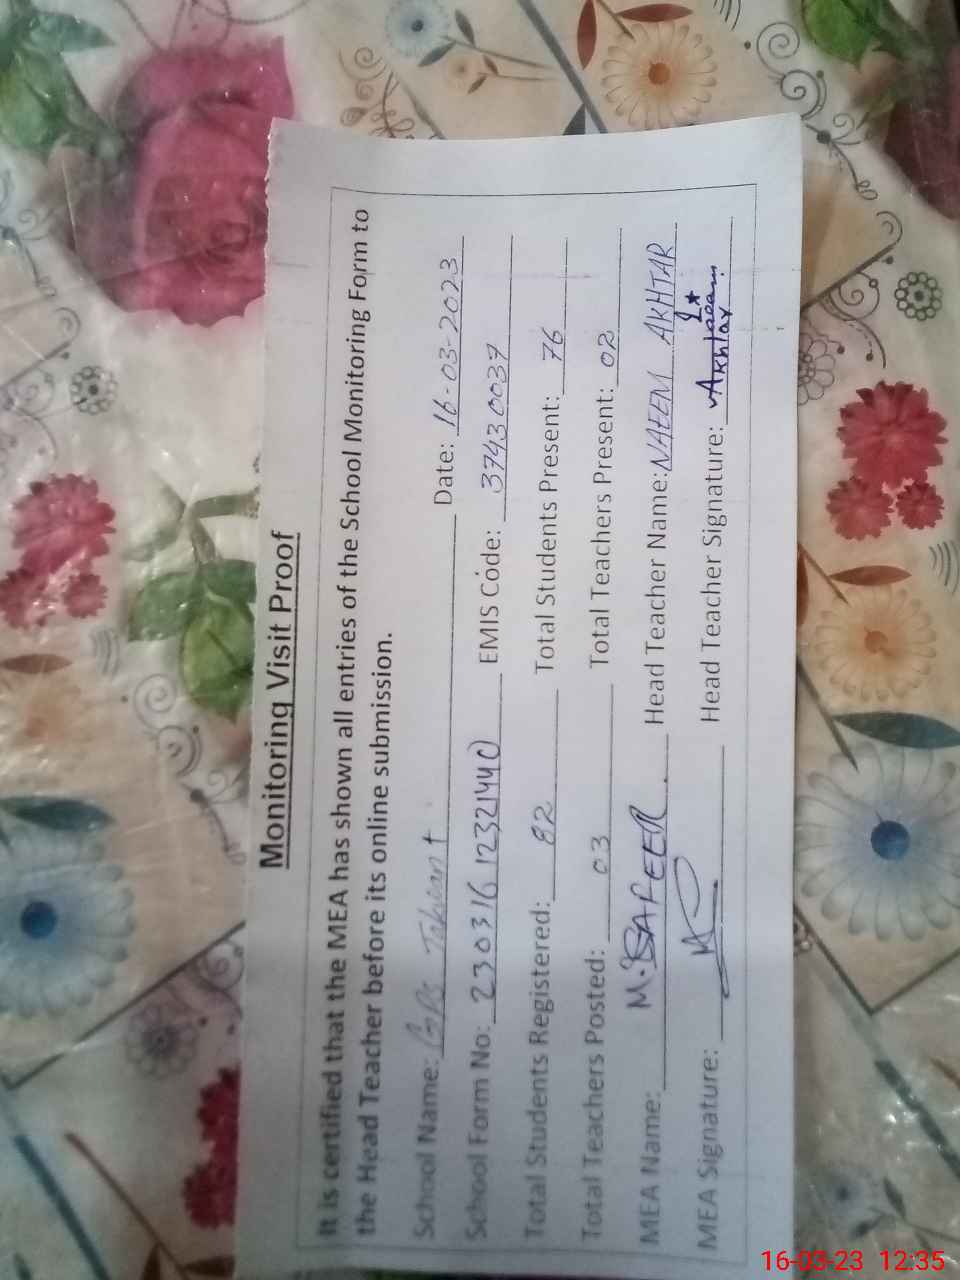 Monitoring Visit Proof
It is certified that the MEA has shown all entries of the School Monitoring Form to
the Head Teacher before its online submission.
School Name: GPS Takwant Date: 16-03-2023
School Form No: 230316 1232144 EMIS Code: 37430037
Total Students Registered: 82 Total Students Present: 76
Total Teachers Posted: 03 Total Teachers Present: 02
MEA Name: M. SAFEER. Head Teacher Name: NAEEM AKHTAR
MEA Signature: Head Teacher Signature: Akhtar
16-03-23 12:35